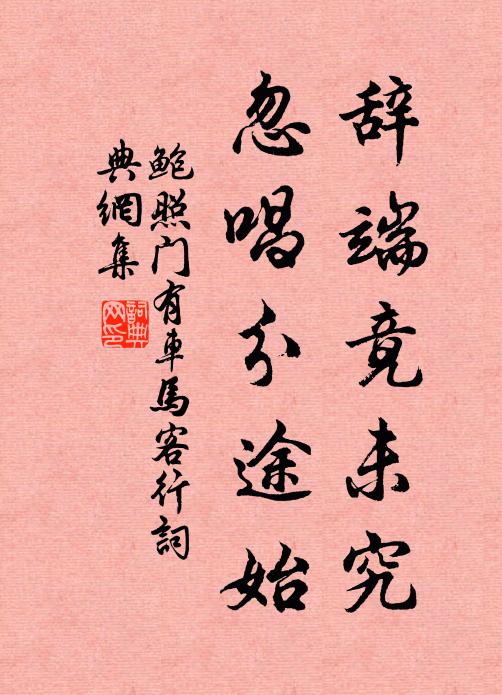 辞端竟未究
忽唱分途始
鲍照门有車馬客行詞
典網集
詞典网印